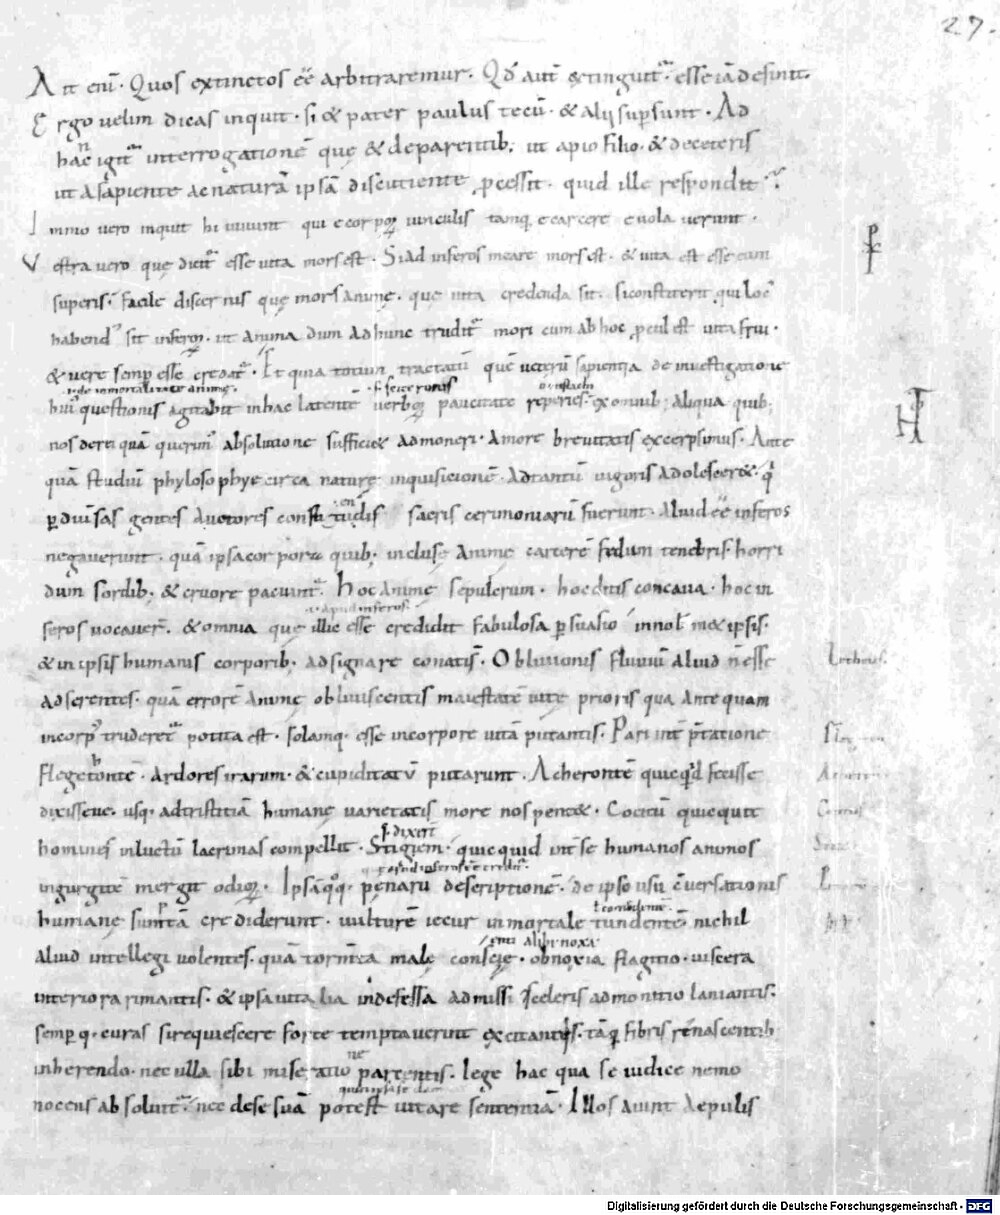 27.
Ait enī. Quos extinctos eē arbitraremur. Qđ aut̄ extinguit᷑. esse iā desinit.
Ergo uelim dicas inquit. si & pater paulus tecū. & alij sup̄sunt. Ad
hanc igit᷑ interrogationē quę & de parentib; ut a pio filio. & de ceteris
ut a sapiente ac naturā ipsā discutiente ꝓcessit. quid ille respondit?
Immo uero inquit hi uiuunt qui e corpoꝝ uinculis tamq; e carcere euolauerunt.
Vestra uero quę dicit᷑ esse uita mors est. Si ad inferos meare mors est. & uita est esse cum
superis. facile discernis quę mors animę. quę uita credenda sit. si constiterit qui loc᷒
habend᷒ sit inferoꝝ. ut anima dum ad hunc trudit᷑ mori cum ab hoc ꝓcul est uita frui.
& uere semp̄ esse credat᷑. Et quia totum tractatū quē ueterū sapientia de inuestigatione
.i. de inmortalitate animę.
hui᷒ questionis agitabit in hac latente uerboꝝ paucitate reperies. ex omnib; aliqua quib;
nos de rei quā querim᷒ absolutione sufficiet admoneri. amore breuitatis excerpsimus. Ante
quā studiū phylosophyę circa naturę inquisicionē. ad tantū uigoris adolesceret. q̇
ꝑ diuersas gentes auctores constituendis sacris cerimoniarū fuerunt. aliud eē inferos
negauerunt. quā ipsa corpora. quib; inclusę animę carcerē fedum tenebris horri
dum sordib; & cruore paciunt᷑. Hoc animę sepulcrum. hoc ditis concaua. hoc in
.i. apud inferos.
feros uocauer̄. & omnia quę illic esse credidit fabulosa ꝑsuasio in nob̄ metipsis.
& in ipsis humanis corporib; adsignare conati sī. Obliuionis fluuiū aliud n̄ esse
adserentes. quā errorē animę obliuiscentis maiestatē uitę prioris qua antequam
in corp᷒ truderet᷑ potita est. solamq; esse in corpore uitā putantis. Pari int̄p̄tatione
Flegetontē. ardores irarum. & cupiditatū putarunt. Acherontē quicqđ fecisse
dixisseue. usq; ad tristitiā humanę uarietatis more nos penetet. Cocitū quicquit
homines in luctū lacrimas compellit. Stigem. quicquid int̄ se humanos animos
in gurgitē mergit odioꝝ. Ipsā qq; penarū descriptionē. de ipso usu c̄uersationis
humanę sumptā crediderunt. uulturē iecur inmortale tundentē nichil
aliud intellegi uolentes. quā torm̄ta malę conscię. obnoxia flagitio. uiscera
interiora rimantis. & ipsa uitalia indefessa admissi sceleris admonitio laniantis.
semp̄q. curas si requiescere forte temptauerint excitantis. tāq̄ fibris renascentib;
inherendo. nec ulla sibi miseratione parcentis. lege hac qua se iudice nemo
nocens absoluit᷑. nec de se suā potest uitare sententiā. Illos aiunt aepulis